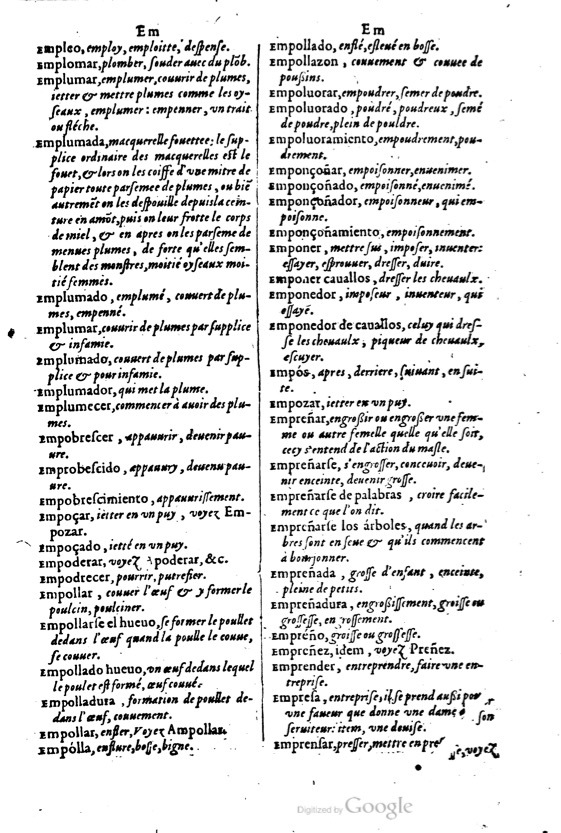 Em
Empleo, employ, emploitte, despense.
Emplomar, plomber, souder auec du plõb.
Emplumar, emplumer, couurir de plumes,
ietter & mettre plumes comme les oy-
seaux, emplumer: empenner, vn trait
ou fléche.
Emplumada, macquerelle fouettee; le sup-
plice ordinaire des macquerelles est le
fouet, & lors on les coiffe d'vne mitre de
papier toute parsemee de plumes, ou biẽ
autremẽt on les despouille depuis la cein-
ture en amõt, puis on leur frotte le corps
de miel, & en apres on les parseme de
menues plumes, de forte qu'elles sem-
blent des monstres, moitié oyseaux moi-
tié femmes.
Emplumado, emplumé, couuert de plu-
mes, empenné.
Emplumar, couurir de plumes par supplice
& infamie.
Emplumado, couuert de plumes par sup-
plice & pour infamie.
Emplumador, qui met la plume.
Emplumecer, commencer à auoir des plu-
mes.
Empobrescer, appauurir, deuenir pau-
ure.
Emprobescido, appauury, deuenu pau-
ure.
Empobrescimiento, appauurissement.
Empoçar, ietter en vn puy, voyez Em-
pozar.
Empoçado, ietté en vn puy.
Empoderar, voyez Apoderar, &c.
Empodrecer, pourrir, putrefier.
Empollar, couuer l'œuf & y former le
poulcin, poulciner.
Empollarse el hueuo, se former le poullet
dedans l'œuf quand la poulle le couue,
se couuer.
Empollado hueuo, vn œuf dedans lequel
le poulet est formé, œuf couué.
Empolladura, formation de poullet de-
dans l'œuf, couuement.
Empollar, enfler, Voyez Ampollar.
Empólla, enflure, bosse, bigne.
Em
Empollado, enflé, esleué en bosse.
Empollazon, couuement & couuee de
poußins.
Empoluorar, empoudrer, semer de poudre.
Empoluorado, poudré, poudreux, semé
de poudre, plein de pouldre.
Empoluoramiento, empoudrement, pou-
drement.
Emponçoñar, empoisonner, enuenimer.
Emponçoñado, empoisonné, enuenimé.
Emponçoñador, empoisonneur, qui em-
poisonne.
Emponçoñamiento, empoisonnement.
Emponer, mettre sus, imposer, inuenter:
essayer, esprouuer, dresser, duire.
Emponer cauallos, dresser les cheuaulx.
Emponedor, imposeur, inuenteur, qui
essayé.
Emponedor de cauallos, celuy qui dres-
se les cheuaulx, piqueur de cheuaulx,
escuyer.
Empós, apres, derriere, suiuant, en sui-
te.
Empozar, ietter en vn puy.
Empreñar, engroßir ou engroßer vne fem-
me ou autre femelle quelle qu'elle soit,
cecy s'entend de l'action du masle.
Empreñarse, s'engrosser, conceuoir, deue-
nir enceinte, deuenir grosse.
Empreñarse de palabras, croire facile-
ment ce que l'on dit.
Empreñarse los árboles, quand les ar-
bres sont en seue & qu'ils commencent
à bourjonner.
Empreñada, grosse d'enfant, enceinte,
pleine de petits.
Empreñadura, engroßissement, groisse ou
grossesse, engrossement.
Empreño, groisse ou grossesse.
Empreñez, idem, voyez Preñez.
Emprender, entreprendre, faire vne en-
treprise.
Empresa, entreprise, il se prend außi pour
vne faueur que donne vne dame son
seruiteur: item, vne deuise.
Emprensar, presser, mettre en presse, voyez
Digitized by Google